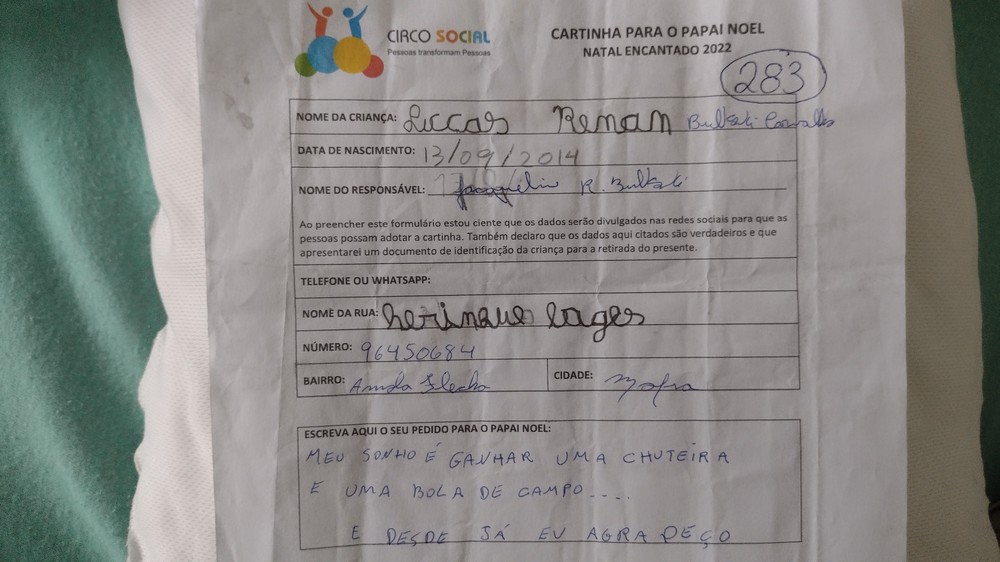 CIRCO SOCIAL
Pessoas transformam Pessoas
CARTINHA PARA O PAPAI NOEL
NATAL ENCANTADO 2022
283
NOME DA CRIANÇA: Luccas Renan
DATA DE NASCIMENTO: 13/09/2014
NOME DO RESPONSÁVEL: R.
Ao preencher este formulário estou ciente que os dados serão divulgados nas redes sociais para que as
pessoas possam adotar a cartinha. Também declaro que os dados aqui citados são verdadeiros e que
apresentarei um documento de identificação da criança para a retirada do presente.
TELEFONE OU WHATSAPP:
NOME DA RUA: herinque lages
NÚMERO: 96450684
BAIRRO:
CIDADE: Mafra
ESCREVA AQUI O SEU PEDIDO PARA O PAPAI NOEL:
MEU SONHO É GANHAR UMA CHUTEIRA
E UMA BOLA DE CAMPO....
E DESDE JÁ EU AGRADEÇO